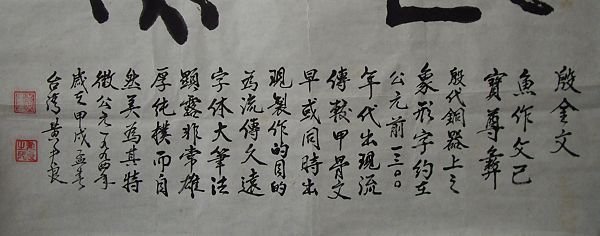 殷金文
魚作父己
寶尊彝
殷代銅器上之
象形字約在
公元前一三〇〇
年代出現流
傳較甲骨文
早或同時出
現製作的目的
為流傳久遠
字体大筆法
顯露非常雄
厚純樸而自
然美為其特
徵公元一九九四年
歲次甲戌孟春
台灣黃尹良